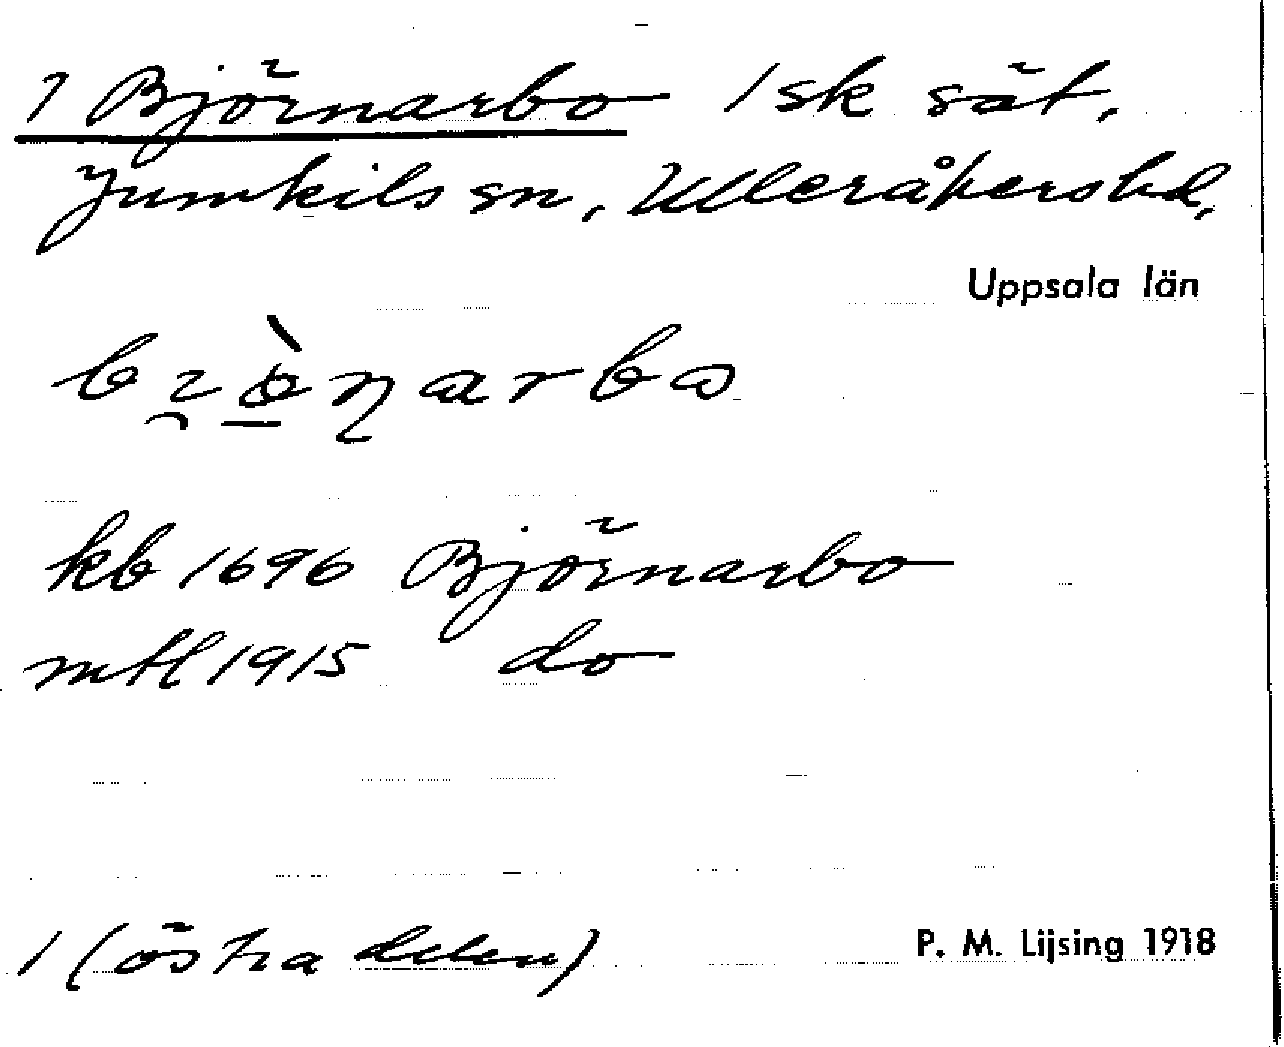 1 Björnarbo 1 sk sät,
Jumkils sn, Ulleråkers hd,
Uppsala län
kb 1696 Björnarbo
mtl 1915 do
1 (östra delen) P. M. Lijsing 1918